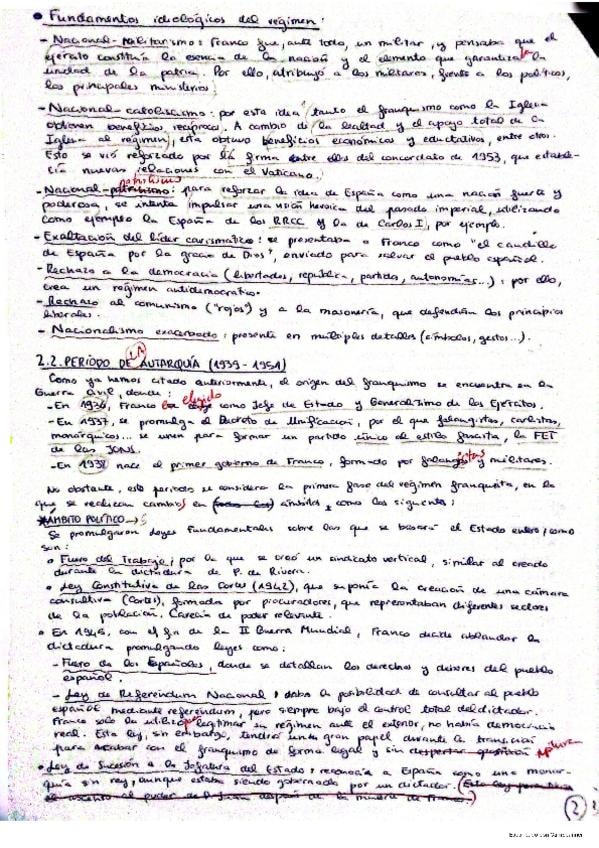 • Fundamentos ideológicos del régimen:
- Nacional-militarismo: Franco fue, ante todo, un militar, y pensaba que el
ejército constituía la esencia de la nación y el elemento que garantizaba la
unidad de la patria. Por ello, atribuyó a los militares, frente a los políticos,
los principales ministerios.
- Nacional-catolicismo: por esta idea tanto el franquismo como la Iglesia
obtienen beneficios recíprocos. A cambio de la lealtad y el apoyo total de la
Iglesia al régimen, esta obtuvo beneficios económicos y educativos, entre otros.
Esto se vió reforzado por la firma entre ellos del concordato de 1953, que estable-
cía nuevas relaciones con el Vaticano.
patriotismo
- Nacional-patriotismo: para reforzar la idea de España como una nación fuerte y
poderosa, se intenta impulsar una visión heroica del pasado imperial, utilizando
como ejemplo la España de los RRCC y la de Carlos I, por ejemplo.
- Exaltación del líder carismático: se presentaba a Franco como "el caudillo
de España por la gracia de Dios", enviado para salvar el pueblo español.
- Rechazo a la democracia (libertades, república, partidos, autonomías...): por ello,
crea un régimen antidemocrático.
- Rechazo al comunismo ("rojos") y a la masonería, que defendían los principios
liberales.
- Nacionalismo exacerbado: presente en múltiples detalles (símbolos, gestos...).
2.2. PERÍODO DE LA AUTARQUÍA (1939-1951)
Como ya hemos citado anteriormente, el origen del franquismo se encuentra en la
Guerra Civil, donde:
- En 1936, Franco es elegido como Jefe de Estado y Generalísimo de los Ejércitos.
- En 1937, se promulga el Decreto de Unificación, por el que falangistas, carlistas,
monárquicos... se unen para formar un partido único de estilo fascista, la FET
de las JONS.
- En 1938 nace el primer gobierno de Franco, formado por falangistas y militares.
No obstante, este período se considera la primera fase del régimen franquista, en la
que se realizan cambios en ámbitos, como los siguientes:
*ÁMBITO POLÍTICO →
Se promulgaron Leyes Fundamentales sobre las que se basará el Estado entero; como
son:
• Fuero del Trabajo; por la que se creó un sindicato vertical, similar al creado
durante la dictadura de P. de Rivera.
• Ley Constitutiva de las Cortes (1942), que suponía la creación de una cámara
consultiva (Cortes), formada por procuradores, que representaban diferentes sectores
de la población. Carecían de poder relevante.
• En 1945, con el fin de la II Guerra Mundial, Franco decide ablandar la
dictadura promulgando leyes como:
- Fuero de los Españoles, donde se detallan los derechos y deberes del pueblo
español.
- Ley de Referéndum Nacional: daba la posibilidad de consultar al pueblo
español mediante referéndum, pero siempre bajo el control total del dictador.
Franco solo la utilizó legitimar su régimen ante el exterior, no había democracia
real. Esta ley, sin embargo, tendría un gran papel durante la transición
para acabar con el franquismo de forma legal y sin ruptura
• Ley de Sucesión a la Jefatura del Estado: reconocía a España como una monar-
quía sin rey, aunque estaba siendo gobernado por un dictador. (Esta ley
el ascenso al poder de Juan después de la muerte de Franco.)
2